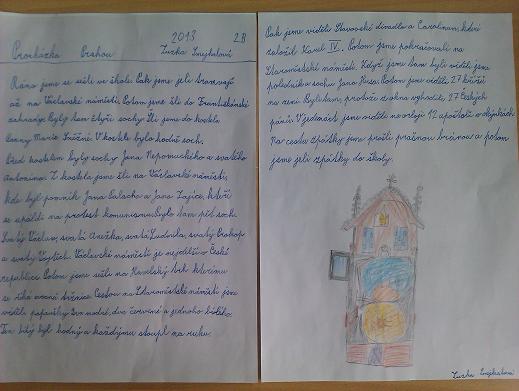 2013 2B
Procházka Prahou Zuzka Snejkalová
Ráno jsme se sešli ve škole. Pak jsme jeli tramvají
až na Václavské náměstí. Potom jsme šli do Františkánské
zahrady. Byly tam čtyři sochy. Šli jsme do kostela
Panny Marie Sněžné. V kostele bylo hodně soch.
Před kostelem byly sochy Jana Nepomuckého a svatého
Antonína. Z kostela jsme šli na Václavské náměstí,
kde byl pomník Jana Palacha a Jana Zajíce, kteří
se upálili na protest komunismu. Bylo tam pět soch
Svatý Václav, svatá Anežka, svatá Ludmila, svatý Prokop
a svatý Vojtěch. Václavské náměstí je nejdelší v České
republice. Potom jsme sešli na kterému
se říká ovocná tržnice. Cestou na Staroměstské náměstí jsme
viděli papoušky dva modré, dva červené a jednoho bílého.
Ten bílý byl hodný a každýmu stoupl na ruku.
Pak jsme viděli Stavovské divadlo a Carolinum, které
založil Karel IV. Potom jsme pokračovali na
Staroměstské náměstí. Když jsme tam byli viděli jsme
pomník a sochu Jana Husa. Potom jsme viděli 27 křížů
na zemi. Byly tam, protože tam 27 českých
pánů. V jsme viděli na orloji 12 apoštolů v okýnkách.
Na cestu zpátky jsme prošli prašnou bránou a potom
jsme jeli zpátky do školy.
Zuzka Snejkalová